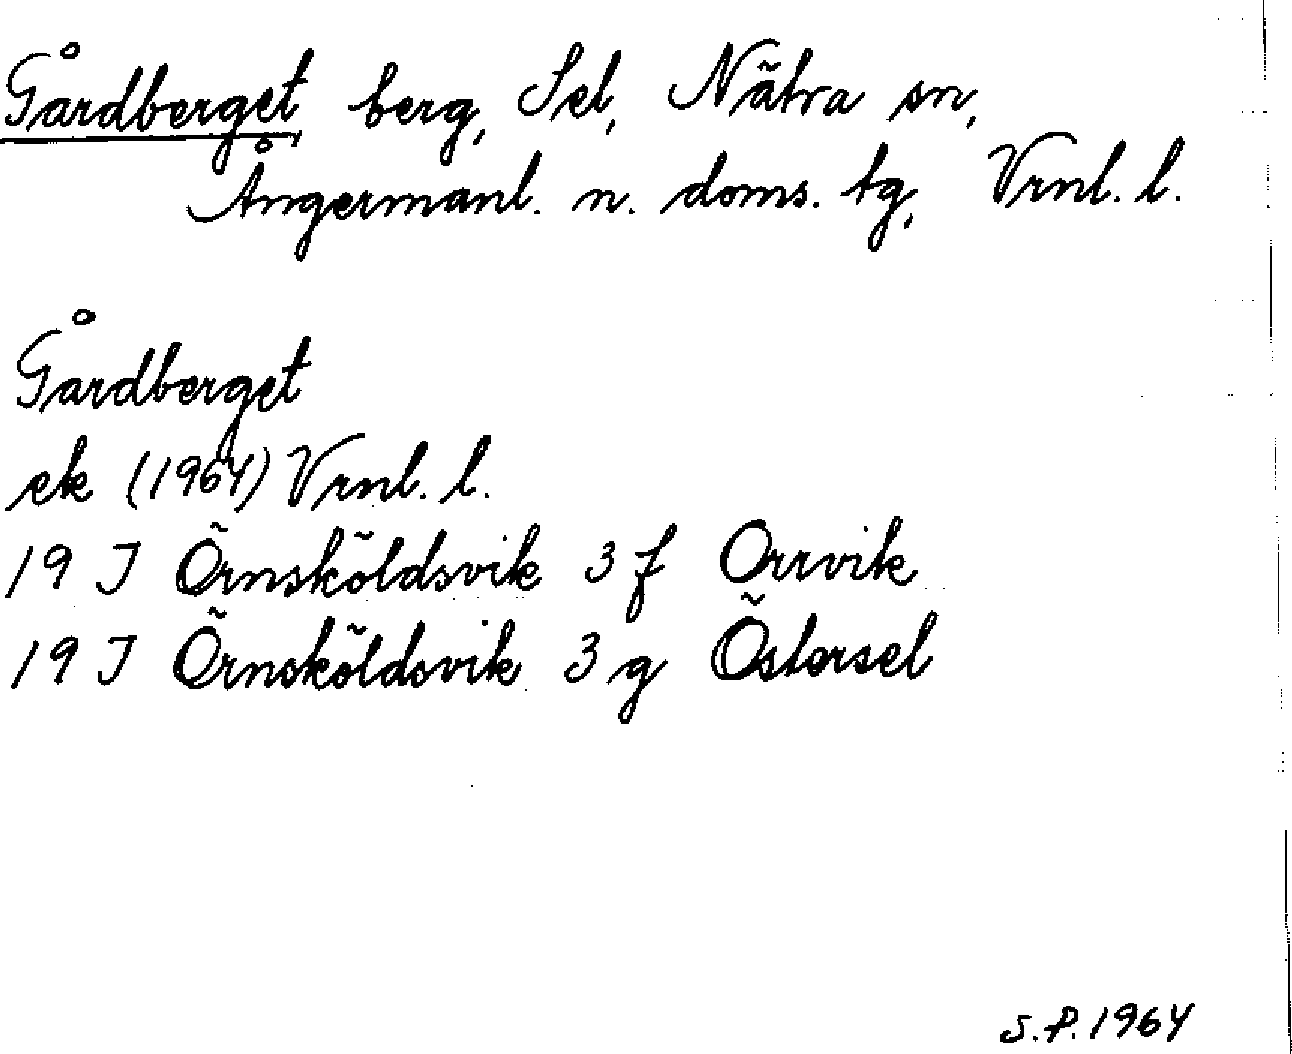 Gårdberget, berg, Sel, Nätra sn,
Ångermanl. n. doms. tg, Vrnl. l.
Gårdberget
ek (1964) Vrnl. l.
19 J Örnsköldsvik 3 f Orrvik
19 J Örnsköldsvik 3 g Östersel
S.P. 1964